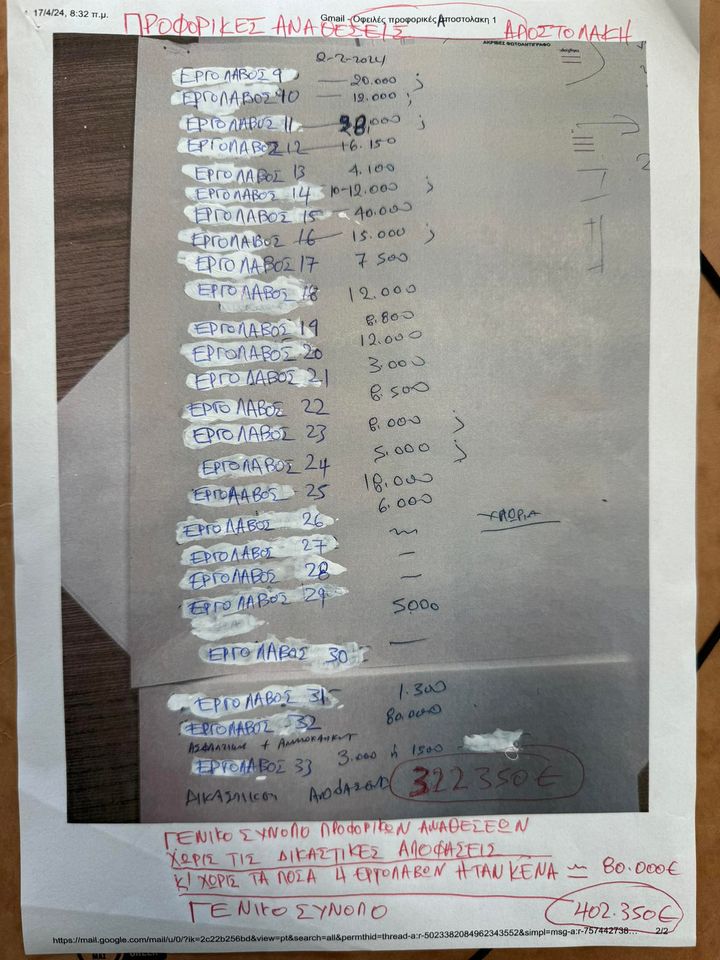 17/4/24, 8:32 π.μ.
Gmail - Οφειλές προφορικές Αποστολακη 1
ΠΡΟΦΟΡΙΚΕΣ ΑΝΑΘΕΣΕΙΣ ΑΠΟΣΤΟΛΑΚΗ
ΑΚΡΙΒΕΣ ΦΩΤΟΑΝΤΙΓΡΑΦΟ
2-2-2024
ΕΡΓΟΛΑΒΟΣ 9 — 20.000 ;
ΕΡΓΟΛΑΒΟΣ 10 — 12.000 ;
ΕΡΓΟΛΑΒΟΣ 11 — .000 ;
ΕΡΓΟΛΑΒΟΣ 12 — 16.150
ΕΡΓΟΛΑΒΟΣ 13 4.100
ΕΡΓΟΛΑΒΟΣ 14 10-12.000 ;
ΕΡΓΟΛΑΒΟΣ 15 - 40.000
ΕΡΓΟΛΑΒΟΣ 16 — 15.000 ;
ΕΡΓΟΛΑΒΟΣ 17 7 500
ΕΡΓΟΛΑΒΟΣ 18 12.000
ΕΡΓΟΛΑΒΟΣ 19 8.800
ΕΡΓΟΛΑΒΟΣ 20 12.000
ΕΡΓΟΛΑΒΟΣ 21 3.000
ΕΡΓΟΛΑΒΟΣ 22 8.500
ΕΡΓΟΛΑΒΟΣ 23 8.000 ;
ΕΡΓΟΛΑΒΟΣ 24 5.000 ;
ΕΡΓΟΛΑΒΟΣ 25 18.000
ΕΡΓΟΛΑΒΟΣ 26 6.000
ΕΡΓΟΛΑΒΟΣ 27 —
ΕΡΓΟΛΑΒΟΣ 28 —
ΕΡΓΟΛΑΒΟΣ 29 —
5000
ΕΡΓΟΛΑΒΟΣ 30 —
ΕΡΓΟΛΑΒΟΣ 31 1.300
ΕΡΓΟΛΑΒΟΣ 32 80.000
ΕΡΓΟΛΑΒΟΣ 33 3.000 ή 1500 —
ΔΙΚΑΣΤΙΚΕΣ ΑΠΟΦΑΣΕΙΣ 322350€
ΓΕΝΙΚΟ ΣΥΝΟΛΟ ΠΡΟΦΟΡΙΚΩΝ ΑΝΑΘΕΣΕΩΝ
ΧΩΡΙΣ ΤΙΣ ΔΙΚΑΣΤΙΚΕΣ ΑΠΟΦΑΣΕΙΣ
Κ! ΧΩΡΙΣ ΤΑ ΠΟΣΑ 4 ΕΡΓΟΛΑΒΩΝ ΗΤΑΝ ΚΕΝΑ ≃ 80.000€
ΓΕΝΙΚΟ ΣΥΝΟΛΟ 402.350€
https://mail.google.com/mail/u/0/?ik=2c22b256bd&view=pt&search=all&permthid=thread-a:r-5023382084962343552&simpl=msg-a:r-757442738... 2/2